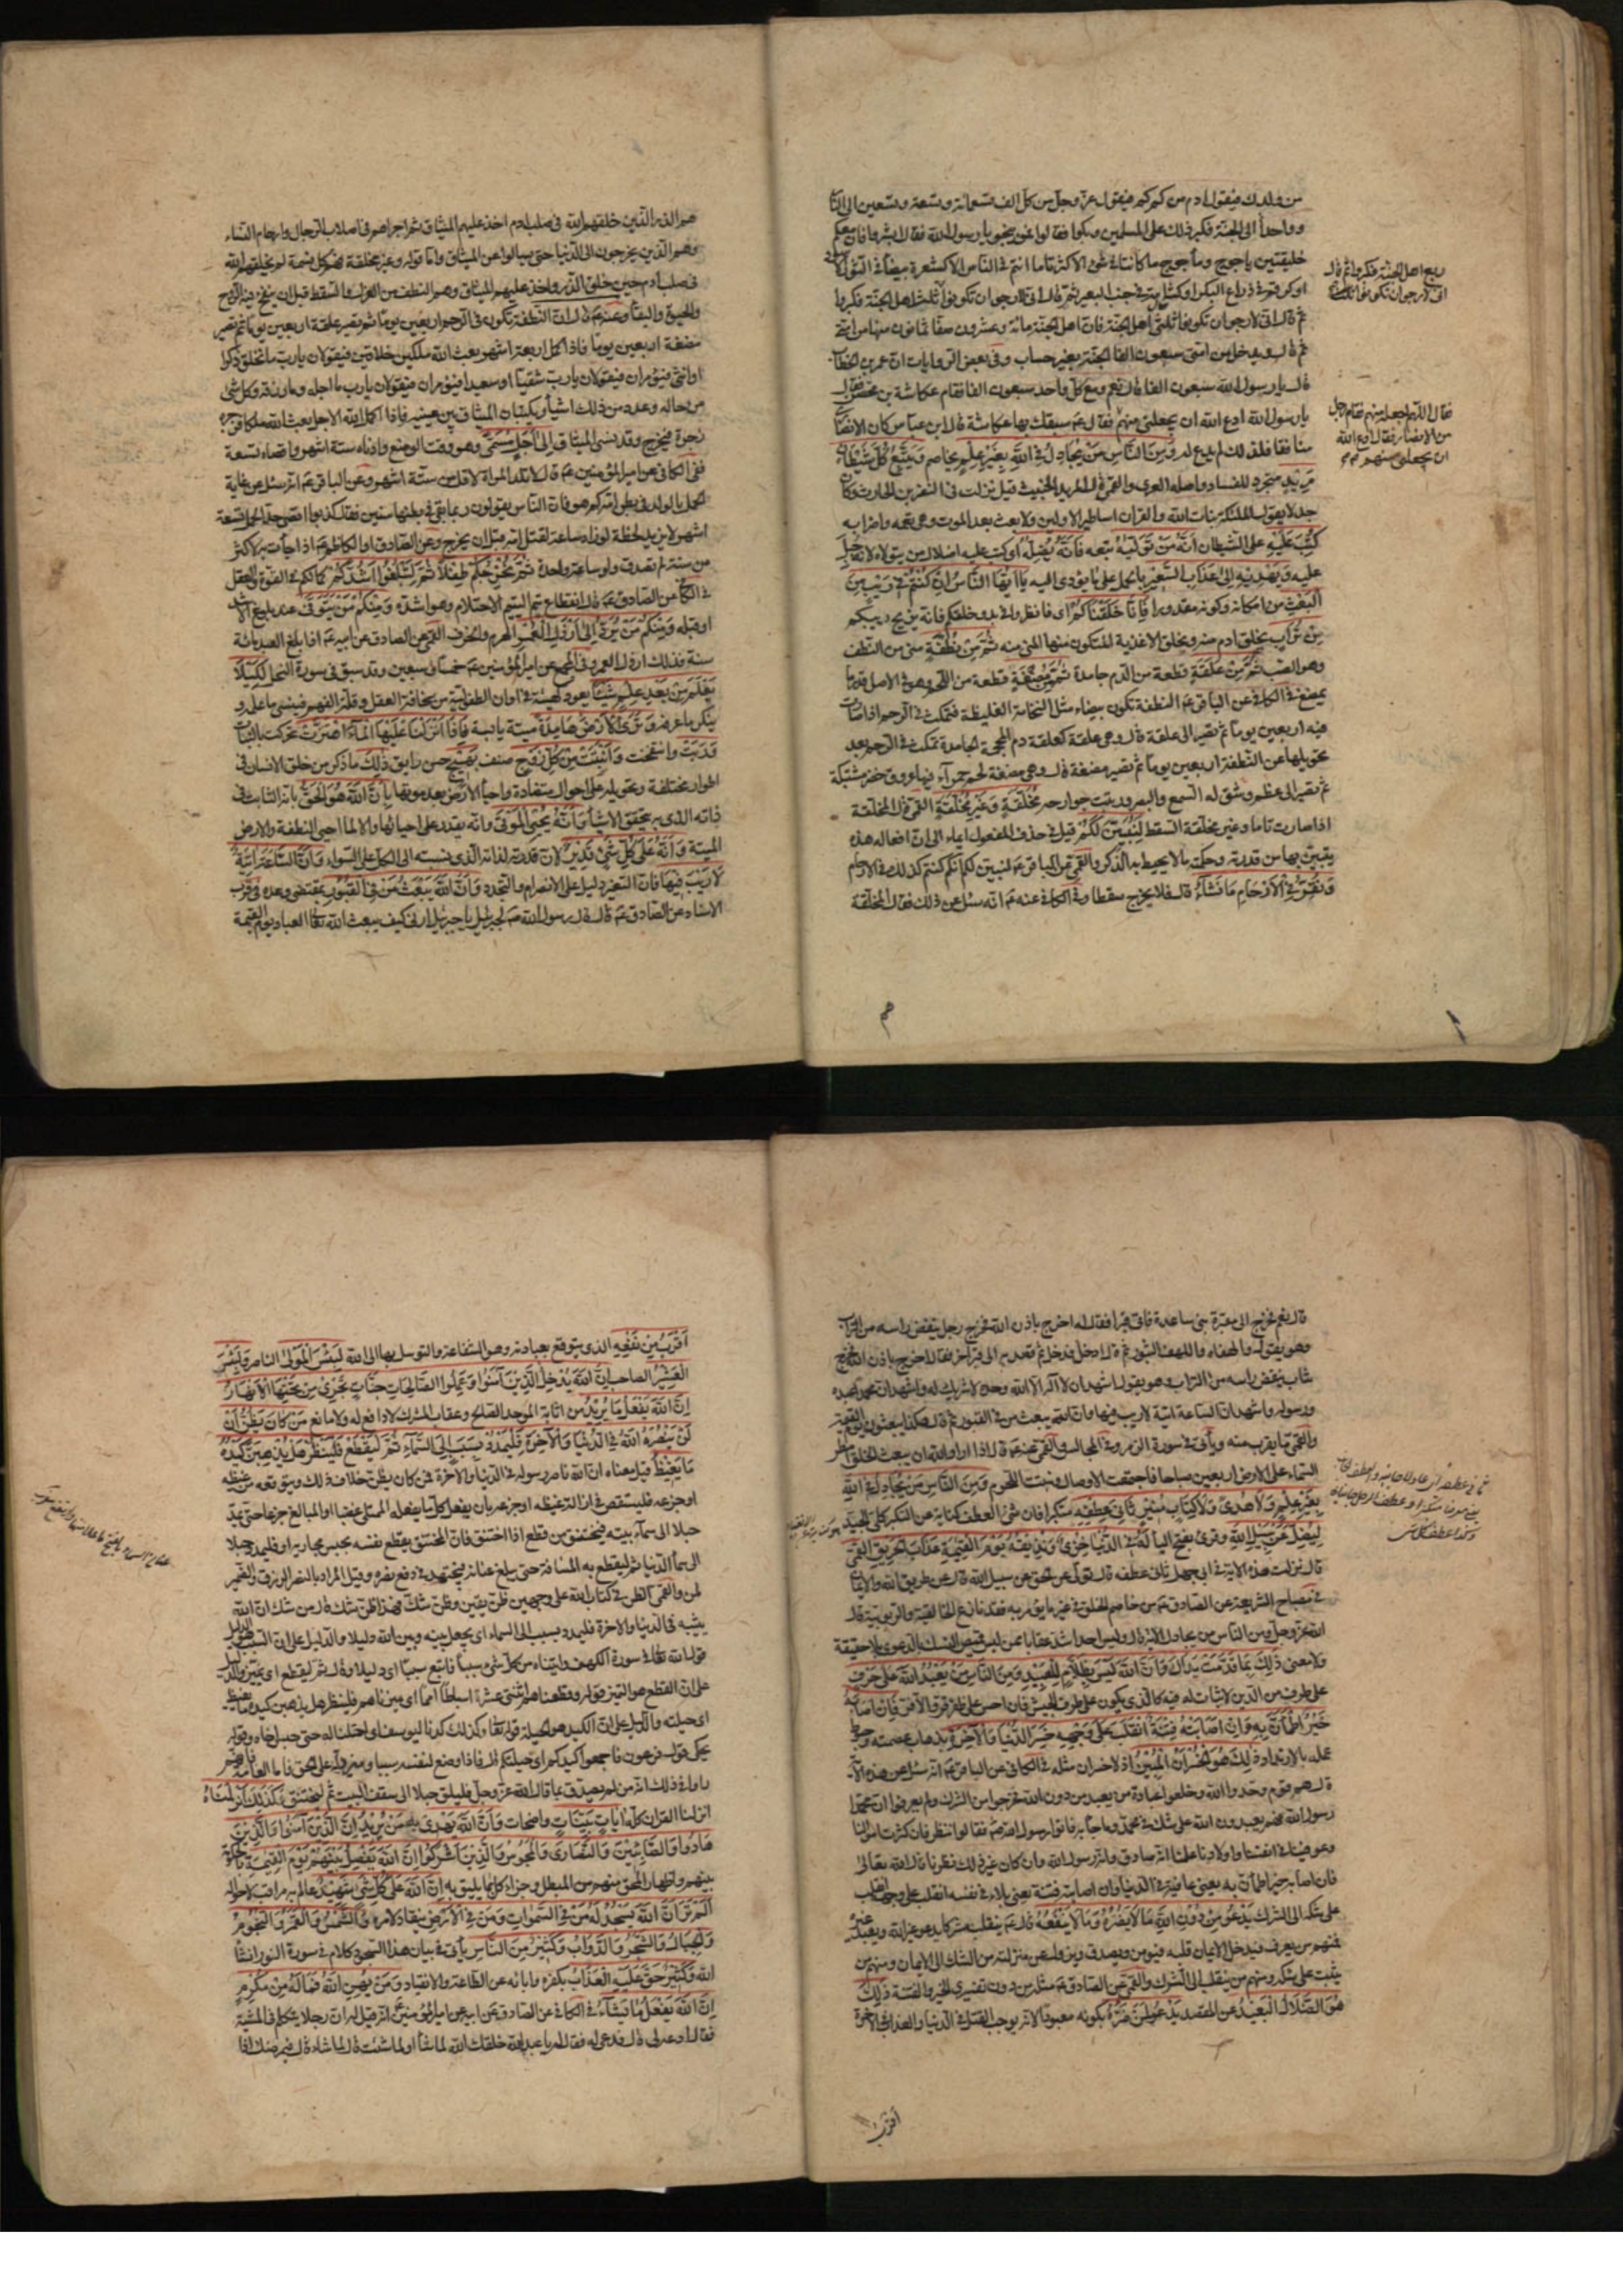 من ولدك فيقول ادم من كم كم فيقول عز وجل من كل الف تسعمائة وتسعة وتسعين الى النار
وواحدا الى الجنة فكبر ذلك على المسلمين وبكوا فقالوا فمن ينجو يا رسول الله فقال ابشروا فان معكم
خليقتين ياجوج وماجوج ما كانتا في شئ الا كثرتاه ما انتم في الناس الا كشعرة بيضاء في الثور الاسود
او كرقم في ذراع البكر او كشامة في جنب البعير ثم قال انى لارجوا ان تكونوا ثلث اهل الجنة فكبروا
ثم قال انى لارجو ان تكونوا ثلثى اهل الجنة فان اهل الجنة مائة وعشرون صفا ثمانون منها من امتى
ثم قال ويدخل من امتى سبعون الفا الجنة بغير حساب وفى بعض الروايات ان عمر بن الخطاب
قال يا رسول الله سبعون الفا قال نعم ومع كل واحد سبعون الفا فقام عكاشة بن محصن فقال
يا رسول الله ادع الله ان يجعلنى منهم فقال عم سبقك بها عكاشة قال ابن عباس كان الانصارى
منافقا فلذلك لم يدع له ومن الناس من يجادل في الله بغير علم يخاصم ويتبع كل شيطان
مريد متجرد للفساد واصله العرى والقمى قال المريد الخبيث قيل نزلت في النضر بن الحارث وكان
جدلا يقول الملائكة بنات الله والقران اساطير الاولين ولا بعث بعد الموت وهى تعمه واضرابه
كتب عليه على الشيطان انه من تولاه تبعه فانه يضله اى كتب عليه اضلال من يتولاه لانه جبل
عليه ويهديه الى عذاب السعير بالحمل على ما يؤدى اليه يا ايها الناس ان كنتم في ريب من
البعث من امكانه وكونه مقدورا فانا خلقناكم اى فانظروا في بدو خلقكم فانه يزيح ريبكم
من تراب بخلق ادم منه وبخلق الاغذية المتكون منها المنى منه ثم من نطفة منى من النطف
وهو الصب ثم من علقة قطعة من الدم جامدة ثم من مضغة قطعة من اللحم وهى في الاصل قدر ما
يمضغ في الكافى عن الباقر عم النطفة تكون بيضاء مثل النخامة الغليظة فتمكث في الرحم اذا صارت
فيه اربعين يوما ثم تصير الى علقة قال وهى علقة كعلقة دم المحجمة الجامدة تمكث في الرحم بعد
تحويلها عن النطفة اربعين يوما ثم تصير مضغة قال وهى مضغة لحم حمراء فيها عروق خضر مشتبكة
ثم تصير الى عظم وشق له السمع والبصر ورتبت جوارحه مخلقة وغير مخلقة القمى قال المخلقة
اذا صارت تاما وغير مخلقة السقط لنبين لكم قيل في حذف المفعول ايماء الى ان افعاله هذه
يتبين بها من قدرته وحكمته ما لا يحيط به الذكر والقمى عن الباقر عم لنبين لكم انكم كنتم كذلك في الارحام
ونقر في الارحام ما نشاء قال فلا يخرج سقطا وفي الكافى عنه عم انه سئل عن ذلك فقال المخلقة
ربع اهل الجنة فكبروا ثم قال
انى لارجوان تكونوا ثلث
فقال اللهم اجعله منهم فقام رجل
من الانصار فقال ادع الله
ان يجعلنى منهم
هم
هم الذر الذين خلقهم الله في صلب ادم اخذ عليهم الميثاق ثم اجراهم في اصلاب الرجال وارحام النساء
وهم الذين يخرجون الى الدنيا حتى يسالوا عن الميثاق واما قوله وغير مخلقة فهم كل نسمة لم يخلقهم الله
في صلب ادم حين خلق الذر واخذ عليهم الميثاق وهم النطف من العزل والسقط قبل ان ينفخ فيه الروح
والحيوة والبقاء وعنه عم قال ان النطفة تكون في الرحم اربعين يوما ثم تصير علقة اربعين يوما ثم تصير
مضغة اربعين يوما فاذا كمل اربعة اشهر بعث الله ملكين خلاقين فيقولان يارب ما تخلق ذكرا
او انثى فيؤمران فيقولان يارب شقيا او سعيدا فيؤمران فيقولان يارب ما اجله وما رزقه وكل شئ
من حاله وعدد من ذلك اشياء ويكتبان الميثاق بين عينيه فاذا اكمل الله الاجل بعث الله ملكا فزجره
زجرة فيخرج وقد نسى الميثاق الى اجل مسمى وهو وقت الوضع وادناه ستة اشهر واقصاه تسعة
ففى الكافى عن امير المؤمنين عم قال لا تلد المراة لاقل من ستة اشهر وعن الباقر عم انه سئل عن غاية
الحمل بالولد في بطن امه كم هو فان الناس يقولون ربما بقى في بطنها سنين فقال كذبوا اقصى حد الحمل تسعة
اشهر لا يزيد لحظة ولو زاد ساعة لقتل امه قبل ان يخرج وعن الصادق او الكاظم عم اذا جاءت به لاكثر
من سنة لم تصدق ولو ساعة واحدة ثم نخرجكم طفلا ثم لتبلغوا اشدكم كمالكم في القوة والعقل
في الكافى عن الصادق عم قال انقطاع يتم اليتيم الاحتلام وهو اشده ومنكم من يتوفى عند بلوغ الاشد
او قبله ومنكم من يرد الى ارذل العمر الهرم والخرف القمى عن الصادق عن ابيه عم اذا بلغ العبد مائة
سنة فذلك ارذل العمر وفى المجمع عن امير المؤمنين عم خمسا وسبعين وقد سبق في سورة النحل لكيلا
يعلم من بعد علم شيئا يعود كهيئته في اوان الطفولية من سخافة العقل وقلة الفهم فينسى ما علمه و
ينكر ما عرفه وترى الارض هامدة ميتة يابسة فاذا انزلنا عليها الماء اهتزت تحركت بالنبات
وربت وانتفخت وانبتت من كل زوج صنف بهيج حسن رايق ذلك ما ذكر من خلق الانسان في
اطوار مختلفة وتحويله على احوال متضادة واحياء الارض بعد موتها بان الله هو الحق بانه الثابت في
ذاته الذى به يتحقق الاشياء وانه يحيى الموتى وانه يقدر على احيائها والا لما احيى النطفة والارض
الميتة وانه على كل شئ قدير لان قدرته لذاته الذى نسبته الى الكل على السواء وان الساعة اتية
لا ريب فيها فان التغير دليل على الانصرام والتجدد وان الله يبعث من في القبور بمقتضى وعده في قرب
الاسناد عن الصادق عم قال قال رسول الله صم لجبرئيل يا جبرئيل ارنى كيف يبعث الله تعالى العباد يوم القيمة
قال نعم فخرج الى مقبرة بنى ساعدة فاتى قبرا فقال له اخرج باذن الله فخرج رجل ينفض راسه من التراب
وهو يقول والهفاه واللهف الثبور ثم قال ادخل فدخل ثم قصد به الى قبر اخر فقال اخرج باذن الله فخرج
شاب ينفض راسه من التراب وهو يقول اشهد ان لا اله الا الله وحده لا شريك له واشهد ان محمدا عبده
ورسوله واشهد ان الساعة اتية لا ريب فيها وان الله يبعث من في القبور ثم قال هكذا يبعثون يوم القيمة
والقمى ما يقرب منه وياتى في سورة الزمر وفي المجالس والقمى عنه عم قال اذا اراد الله ان يبعث الخلق امطر
السماء على الارض اربعين صباحا فاجتمعت الاوصال ونبتت اللحوم ومن الناس من يجادل في الله
بغير علم ولا هدى ولا كتاب منير ثانى عطفه متكبرا فان ثنى العطف كناية عن التكبر كلى الجيد
ليضل عن سبيل الله وقرئ بفتح الياء له في الدنيا خزى ونذيقه يوم القيمة عذاب الحريق القمى
قال نزلت هذه الاية في ابى جهل ثانى عطفه قال تولى عن الحق عن سبيل الله قال عن طريق الله والايمان
في مصباح الشريعة عن الصادق عم من خاصم الخلق في غير ما يؤمر به فقد نازع الخالقية والربوبية قال
الله عز وجل ومن الناس من يجادل الاية قال وليس احد اشد عقابا ممن لبس قميص النسك بالدعوى بلا حقيقة
ولا معنى ذلك بما قدمت يداك وان الله ليس بظلام للعبيد ومن الناس من يعبد الله على حرف
على طرف من الدين لا ثبات له فيه كالذى يكون على طرف الجيش فان احس بظفر قر والا فر فان اصابه
خير اطمان به وان اصابته فتنة انقلب على وجهه خسر الدنيا والاخرة بذهاب عصمته وحبوط
عمله بالارتداد ذلك هو الخسران المبين اذ لا خسران مثله في الكافى عن الباقر عم انه سئل عن هذه الاية
قال هم قوم وحدوا الله وخلعوا عبادة من يعبد من دون الله فخرجوا من الشرك ولم يعرفوا ان محمدا
رسول الله فهم يعبدون الله على شك في محمد وما جاء به فاتوا رسول الله صم فقالوا ننظر فان كثرت اموالنا
وعوفينا في انفسنا واولادنا علمنا انه صادق وانه رسول الله وان كان غير ذلك نظرنا قال الله تعالى
فان اصابه خير اطمان به يعنى عافية في الدنيا وان اصابته فتنة يعنى بلاء في نفسه انقلب على وجهه انقلب
على شكه الى الشرك يدعو من دون الله ما لا يضره وما لا ينفعه قال عم ينقلب مشركا يدعو غير الله ويعبد غيره
فمنهم من يعرف فيدخل الايمان قلبه فيؤمن ويصدق ويزول عن منزلته من الشك الى الايمان ومنهم من
يثبت على شكه ومنهم من ينقلب الى الشرك والقمى عن الصادق عم مثله من دون تفسيرى الخير والفتنة ذلك
هو الضلال البعيد عن المقصد يدعو لمن ضره بكونه معبودا لانه يوجب القتل في الدنيا والعذاب في الاخرة
اقرب
اقرب من نفعه الذى يتوقع بعبادته وهو الشفاعة والتوسل بها الى الله لبئس المولى الناصر ولبئس
العشير الصاحب ان الله يدخل الذين آمنوا وعملوا الصالحات جنات تجرى من تحتها الانهار
ان الله يفعل ما يريد من اثابة الموحد الصالح وعقاب المشرك لا دافع له ولا مانع من كان يظن ان
لن ينصره الله في الدنيا والاخرة فليمدد بسبب الى السماء ثم ليقطع فلينظر هل يذهبن كيده
ما يغيظ قيل معناه ان الله ناصر رسوله في الدنيا والاخرة فمن كان يظن خلاف ذلك ويتوقعه من غيظه
او جزعه فليستقص في ازالة غيظه او جزعه بان يفعل كل ما يفعله الممتلى غضبا او المبالغ جزعا حتى يمد
حبلا الى سماء بيته فيختنق من قطع اذا اختنق فان المختنق يقطع نفسه بحبس مجاريه او فليمدد حبلا
الى سماء الدنيا ثم ليقطع به المسافة حتى يبلغ عنانه فيجتهد في دفع نصره وقيل المراد بالنصر الرزق والضمير
لمن والقمى الظن في كتاب الله على وجهين ظن يقين وظن شك فهذا ظن شك قال من شك ان الله
يثيبه في الدنيا والاخرة فليمدد بسبب الى السماء اى يجعل بينه وبين الله دليلا والدليل على ان السبب هو الدليل
قول الله تعالى في سورة الكهف واتيناه من كل شئ سببا فاتبع سببا اى دليلا وقال ثم ليقطع اى يميز والدليل
على ان القطع هو التميز قوله وقطعناهم اثنتى عشرة اسباطا امما اى ميزناهم فلينظر هل يذهبن كيده ما يغيظ
اى حيلته والدليل على ان الكيد هو الحيلة قوله تعالى وكذلك كدنا ليوسف اى احتلنا له حتى حبس اخاه وقوله
يحكى قول فرعون فاجمعوا كيدكم اى حيلتكم قال فاذا وضع لنفسه سببا وميز دله على الحق فاما العامة فانهم
رووا في ذلك انه من لم يصدق بما قال الله عز وجل فليلق حبلا الى سقف البيت ثم ليختنق وكذلك انزلناه
انزلنا القران كله ايات بينات واضحات وان الله يهدى به من يريد ان الذين آمنوا والذين
هادوا والصابئين والنصارى والمجوس والذين اشركوا ان الله يفصل بينهم يوم القيمة بالحكومة
بينهم واظهار المحق منهم من المبطل وجزاء كل بما يليق به ان الله على كل شئ شهيد عالم به مراقب لاحواله
الم تر ان الله يسجد له من في السموات ومن في الارض ينقاد لامره والشمس والقمر والنجوم
والجبال والشجر والدواب وكثير من الناس ياتى في بيان هذا السجود كلام في سورة النور انشاء
الله وكثير حق عليه العذاب بكفره وابائه عن الطاعة والانقياد ومن يهن الله فما له من مكرم
ان الله يفعل ما يشاء في الكافى عن الصادق عن ابيه عن امير المؤمنين عم انه قيل له ان رجلا يتكلم في المشية
فقال ادعه لى قال فدعى له فقال له يا عبد الله خلقك الله لما شاء او لما شئت قال لما شاء قال فيمرضك اذا